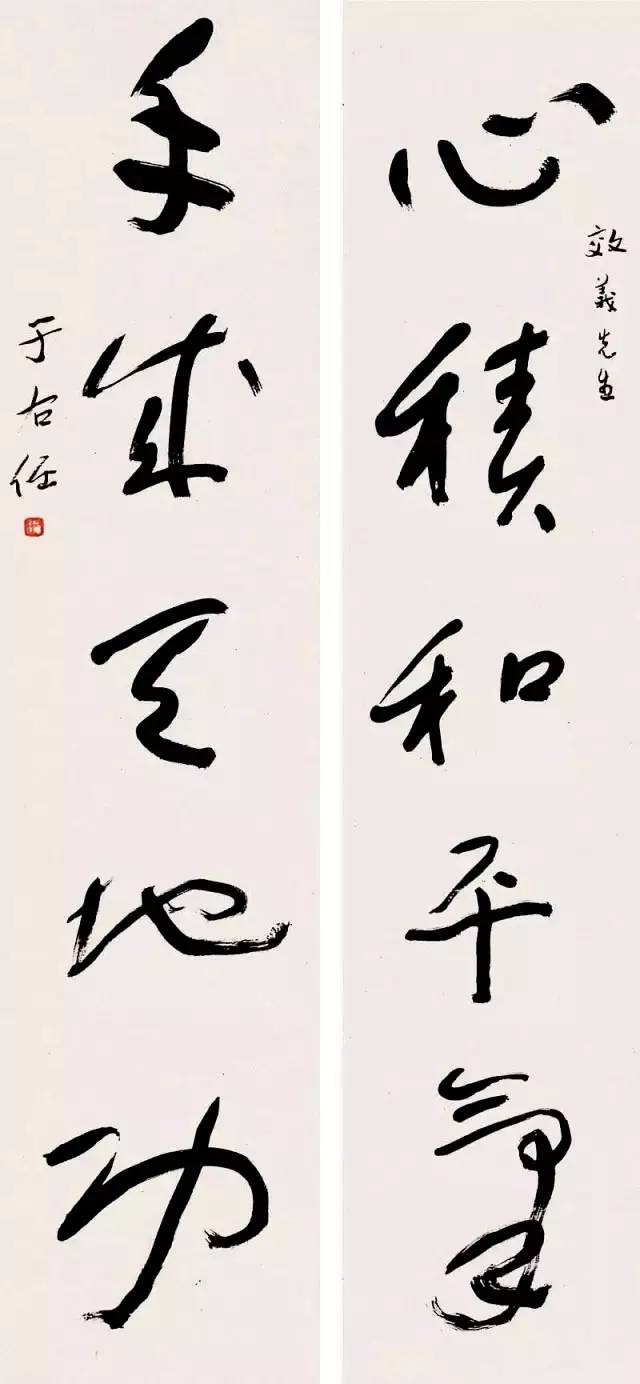 心積和平氣
效義先生
手成天地功
于右任